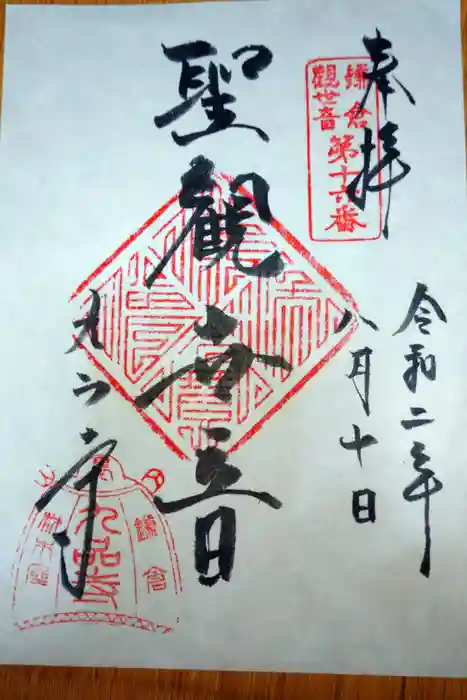 奉拝
鎌倉
觀世音
第十六番
令和二年
八月十日
聖觀世音
九品寺
鎌倉
九品寺
材木座